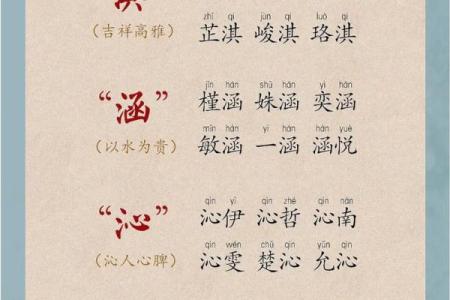 zhǐ qí jùn qí luò qí
(吉祥高雅) 芷淇 峻淇 珞淇
jǐn hán shū hán yì hán
“涵” 槿涵 姝涵 奕涵
mǐn hán yī hán hán yuè
(以水为贵) 敏涵 一涵 涵悦
qìn yī qìn zhé qìn nán
“沁” 沁伊 沁哲 沁南
qìn wén chǔ qìn yǔn qìn
(沁人心脾) 沁雯 楚沁 允沁